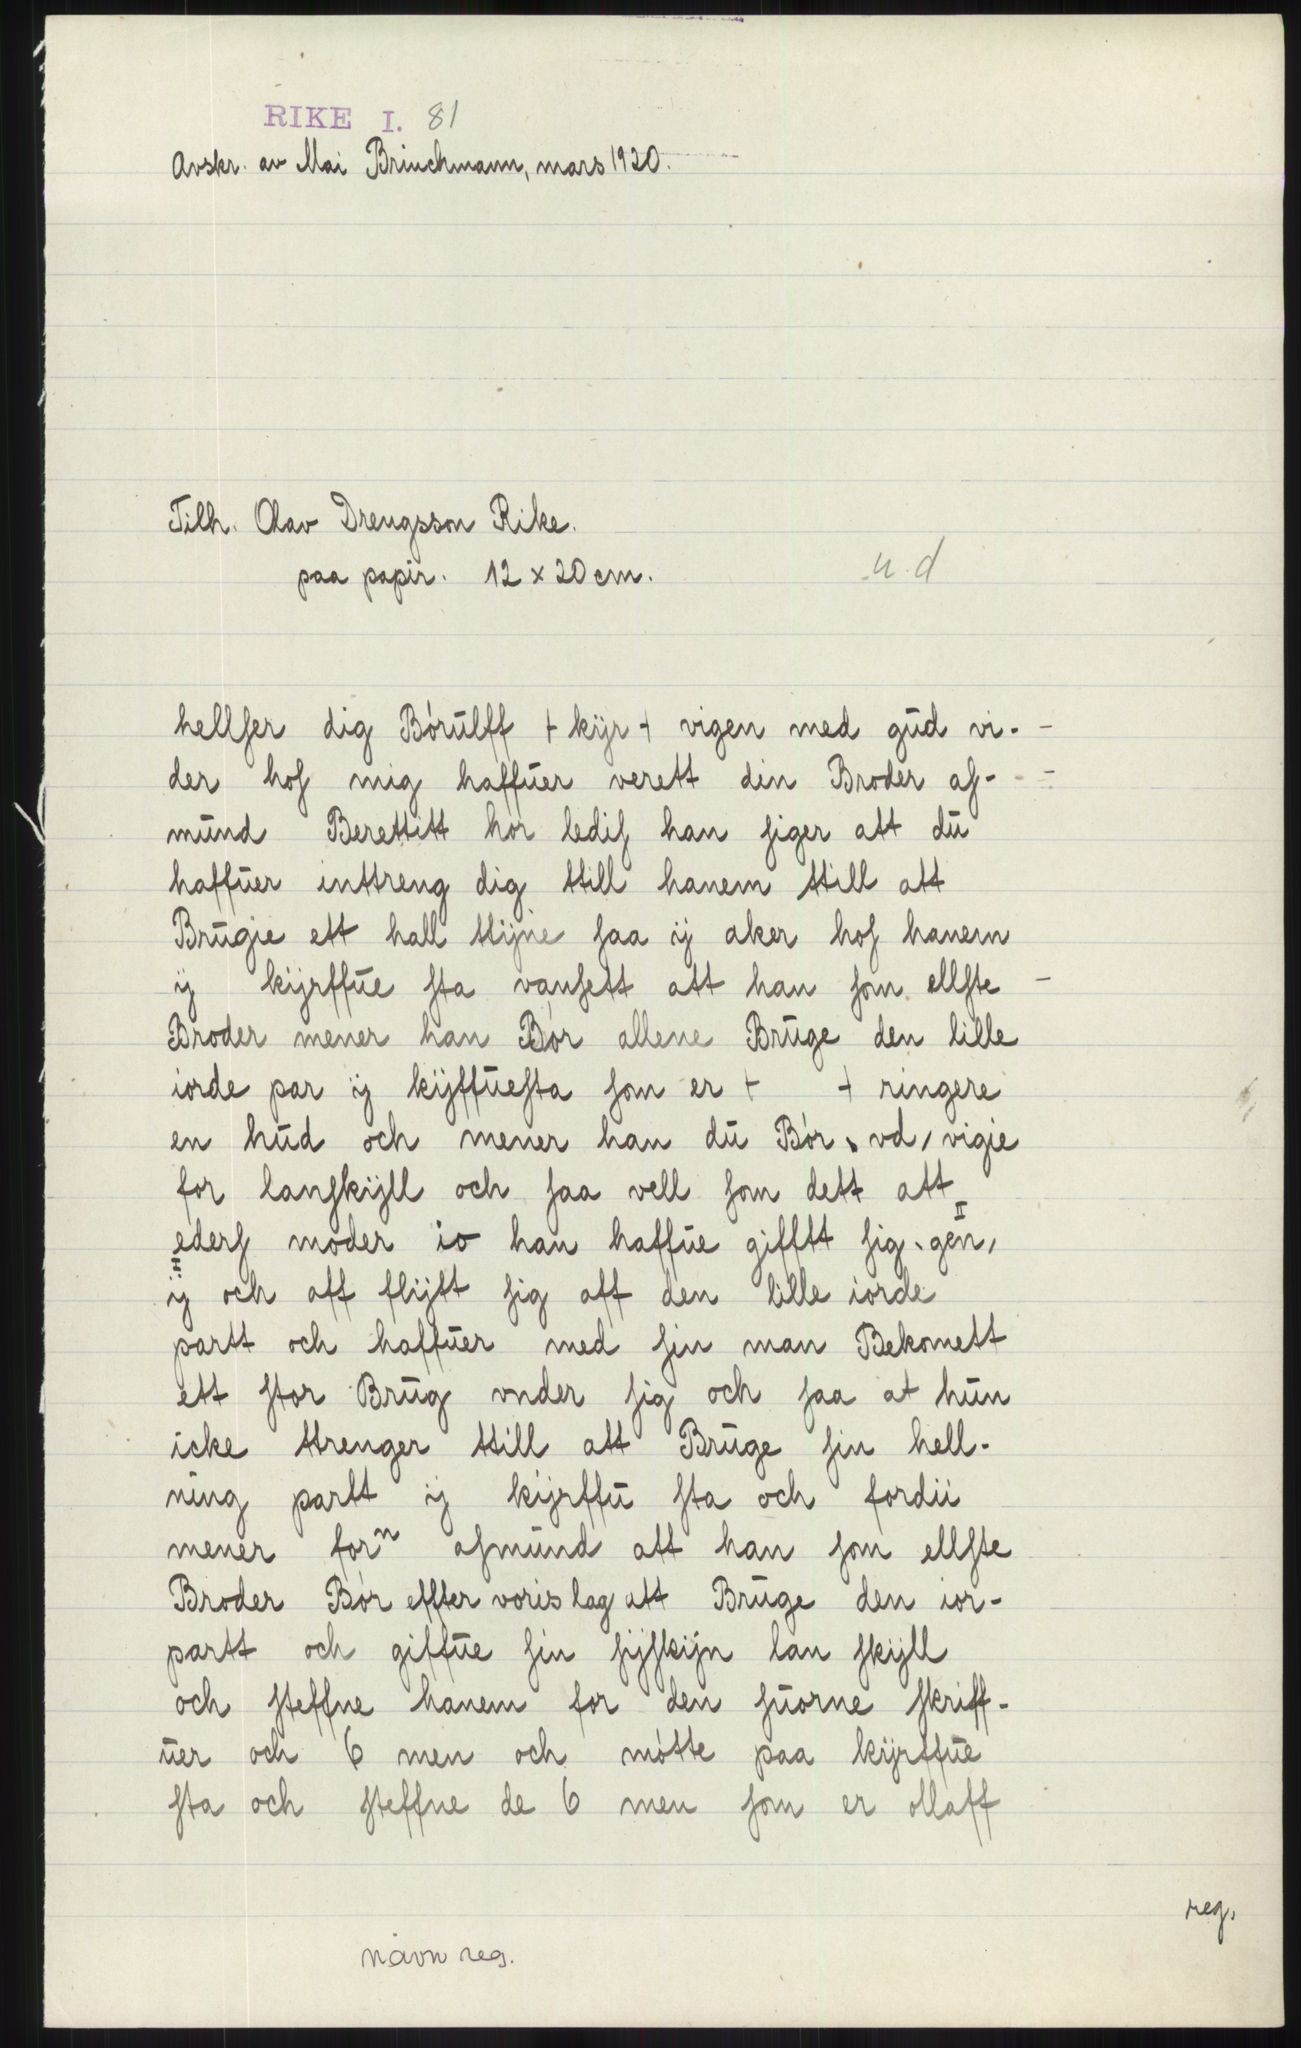 RIKE I. 81
Avskr. av Mai Brinchmann, mars 1920.
Tilh. Olav Drengsson Rike.
paa papir. 12 x 20 cm.
u.d
hellſer dig Bórŭlff + kÿr + vigen med gŭd vi-
der hoſ mig haffŭer verett din Broder aſ-
mŭnd Berettitt hor lediſ han ſiger att dŭ
haffŭer inttreng dig ttill hanem ttill att
Brŭgie ett hall ttÿne ſaa ÿ aker hoſ hanem
ÿ kÿrffŭe ſta vanſett att han ſom ellſte
Broder mener han Bór allene Brŭge den lille
iorde par ÿ kÿffŭeſta ſom er + + ringere
en hŭd och mener han dŭ Bór vd vigie
for lanſkÿll och ſaa vell ſom dett att
ederſ moder io han haffŭe gifftt ſig gen
ÿ och aff flÿtt ſig aff den lille iorde
partt och haffŭer med ſin man Bekomett
ett ſtor Brŭg vnder ſig och ſaa at hŭn
icke ttrenger ttill att Brŭge ſin hell-
ning partt ÿ kÿrffŭ ſta och fordii
mener forn aſmŭnd att han ſom ellſte
Broder Bór effter voris lag att Brŭge den ior-
partt och giffŭe ſin ſÿſkÿn lan ſkÿll
och ſteffne hanem for den ſŭorne ſkriff-
ŭer och 6 men och mótte paa kÿrffŭe
ſta och ſteffne de 6 men ſom er ollaff
reg.
navn reg.